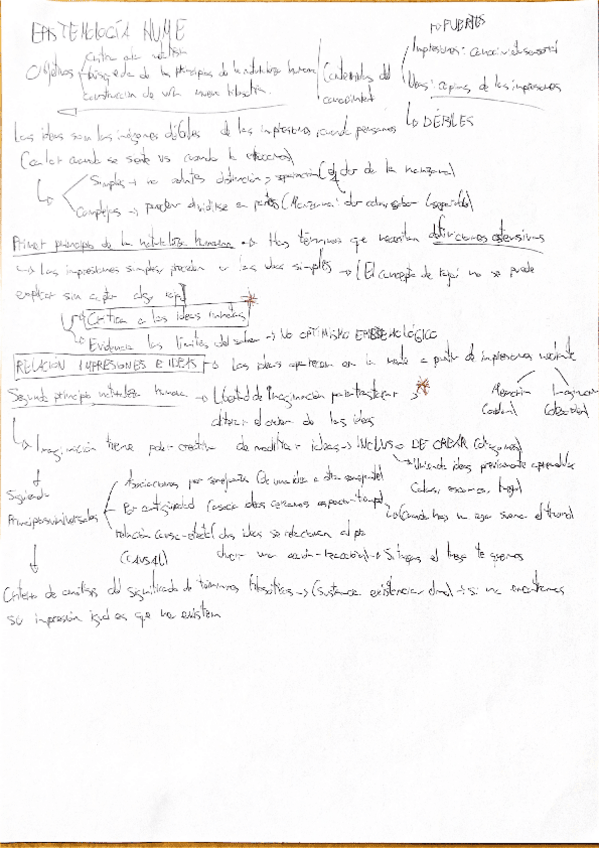 EPISTEMOLOGÍA HUME
→ FUERTES
Impresiones: conocimiento sensorial
Objetivos
búsqueda de los principios de la naturaleza humana
construcción de una nueva filosofía.
Contenidos del conocimiento
Ideas: copias de las impresiones
↳ DÉBILES
Las ideas son las imágenes débiles de las impresiones cuando pensamos
(calor cuando se siente vs cuando lo
Simples → no distinción y separación (el de la manzana)
Complejas → pueden dividirse en partes (Manzana: olor color sabor
Primer principio de la naturaleza humana → Hay términos que necesitan definiciones ostensivas
↳ Las impresiones simples preceden a las ideas simples → (El concepto de rojo no se puede
explicar sin algo rojo)
Crítica a las ideas innatas
Evidencia los límites del saber → NO OPTIMISMO EPISTEMOLÓGICO
RELACIÓN IMPRESIONES E IDEAS → Las ideas aparecen en la mente a partir de impresiones mediante
Segundo principio naturaleza humana → Libertad de Imaginación para trastocar y
alterar el orden de las ideas
Imaginación
↳ Imaginación tiene poder creativo de modificar ideas → INCLUSO DE CREAR (dragones)
↳ Uniendo ideas previamente
Siguiendo
Principios universales
Asociaciones por semejanza (de una idea a otra semejante)
Por contigüidad
relación causa-efecto (dos ideas se relacionan al
(CAUSAL)
una acción-reacción → Si tocas el fuego te quemas
Criterio de análisis del significado de términos filosóficos → (sustancia existencia alma) → si no encontramos
su impresión igual es que no existen